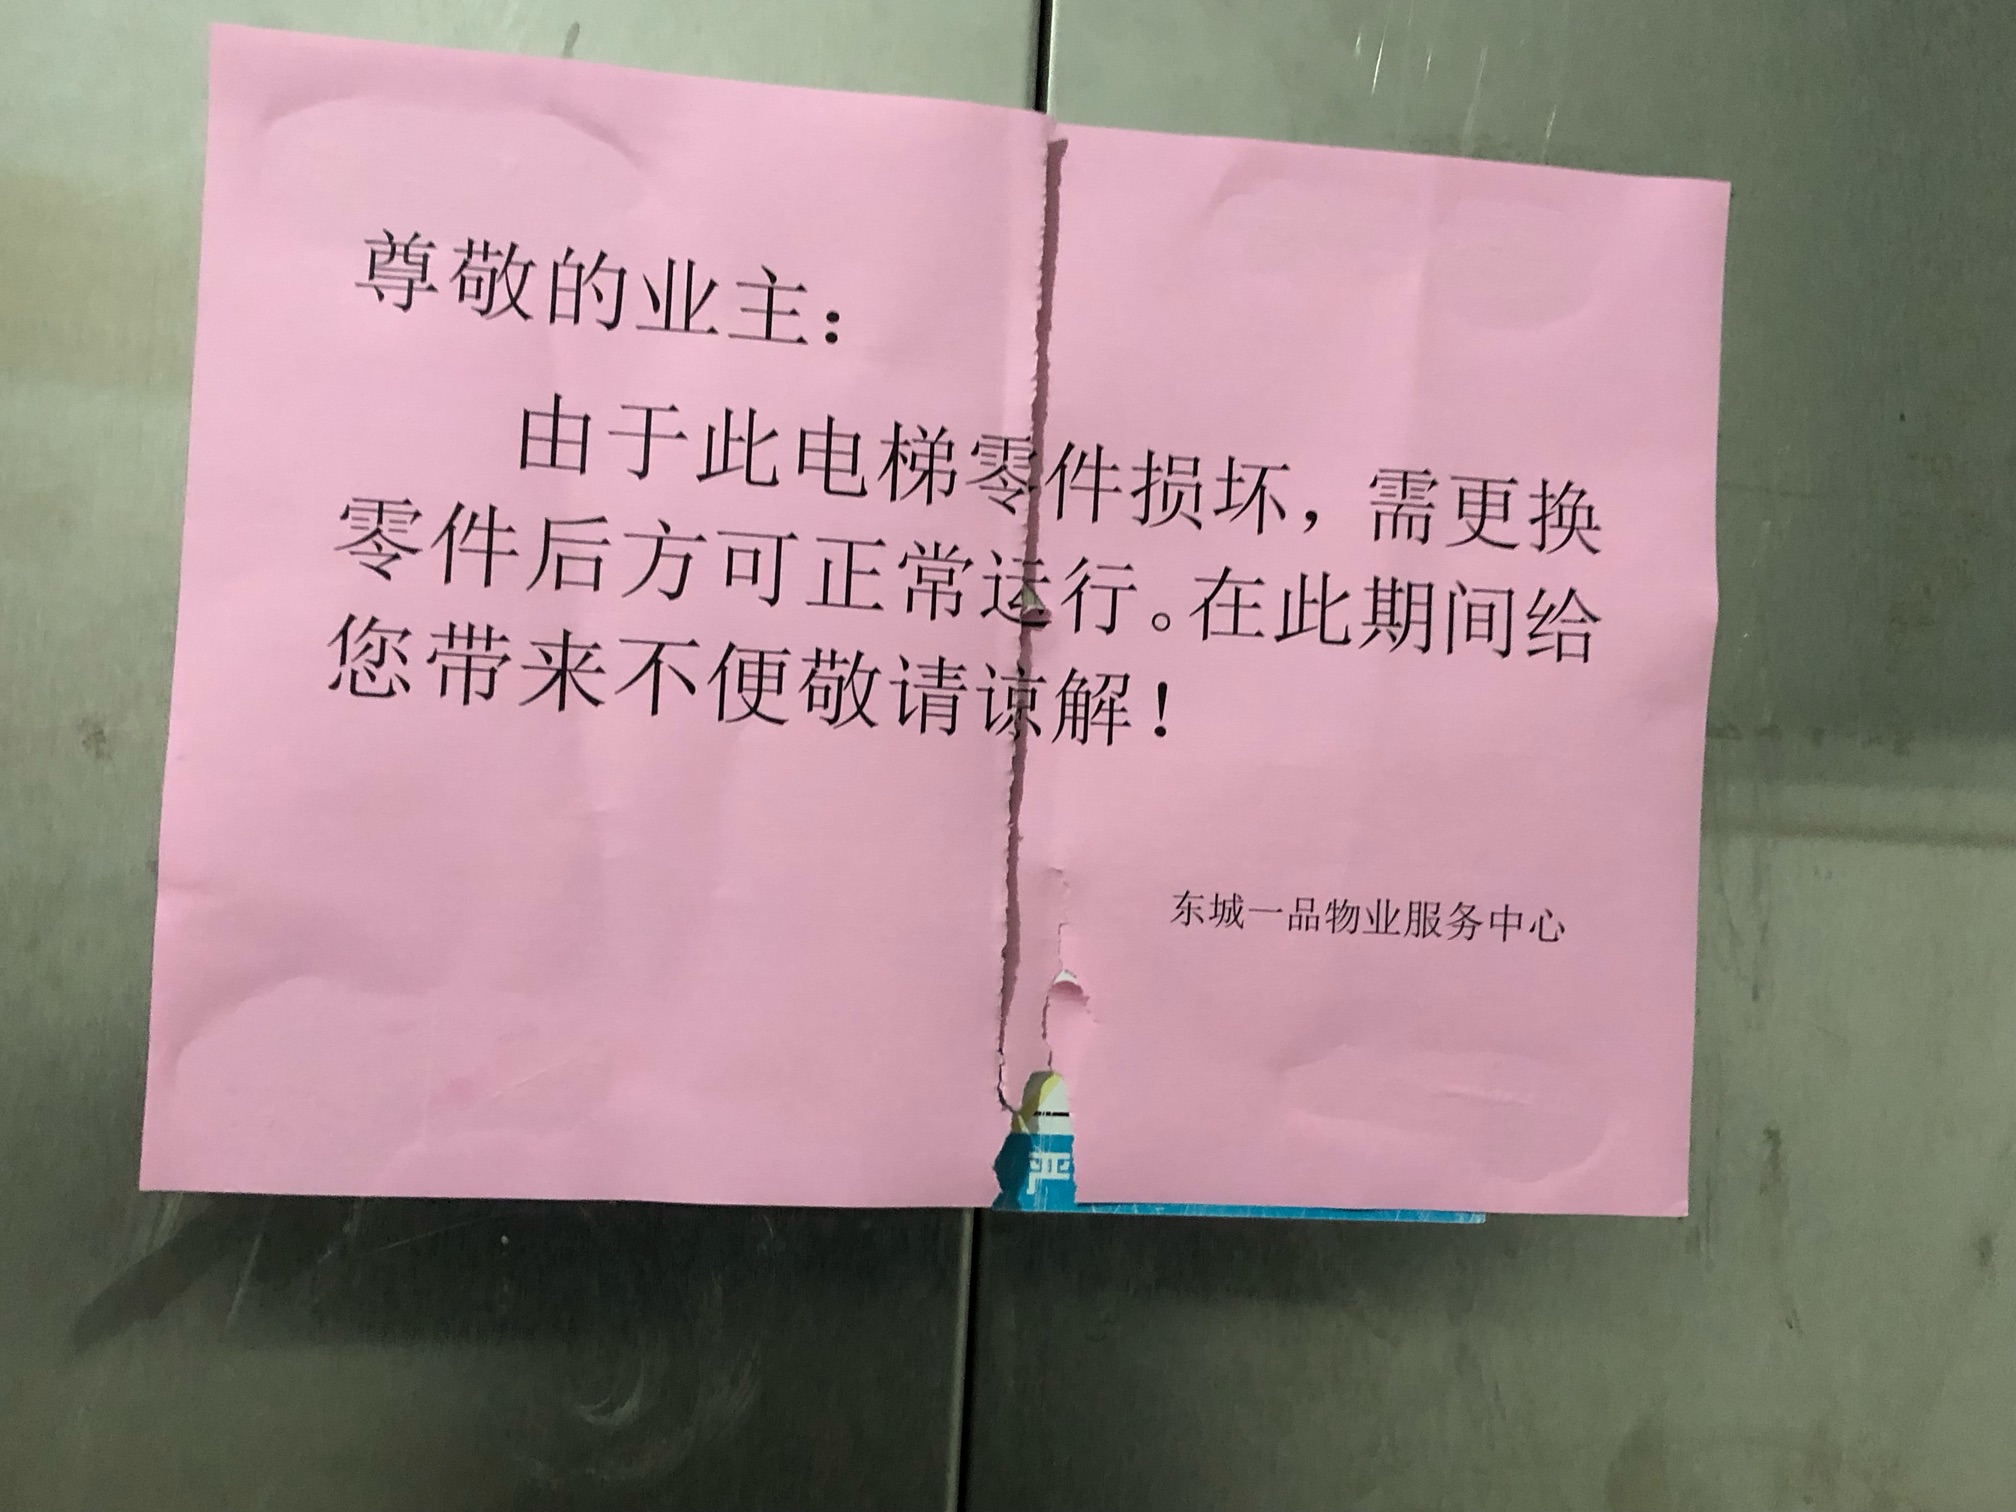 尊敬的业主：
由于此电梯零件损坏，需更换
零件后方可正常运行。在此期间给
您带来不便敬请谅解！
东城一品物业服务中心
严